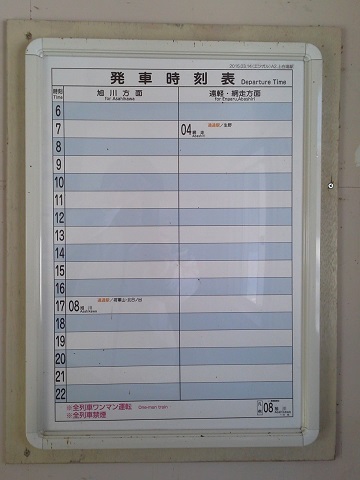 発車時刻表 Departure Time
時刻 旭川方面 遠軽・網走方面
Time for Asahikawa for Engaru,Abashiri
6
7 04 通過駅/生野
網走
Abashiri
8
9
10
11
12
13
14
15
16
17 08 通過駅/
旭川
Asahikawa
18
19
20
21
22
※全列車ワンマン運転 One-man train
※全列車禁煙
08 旭川